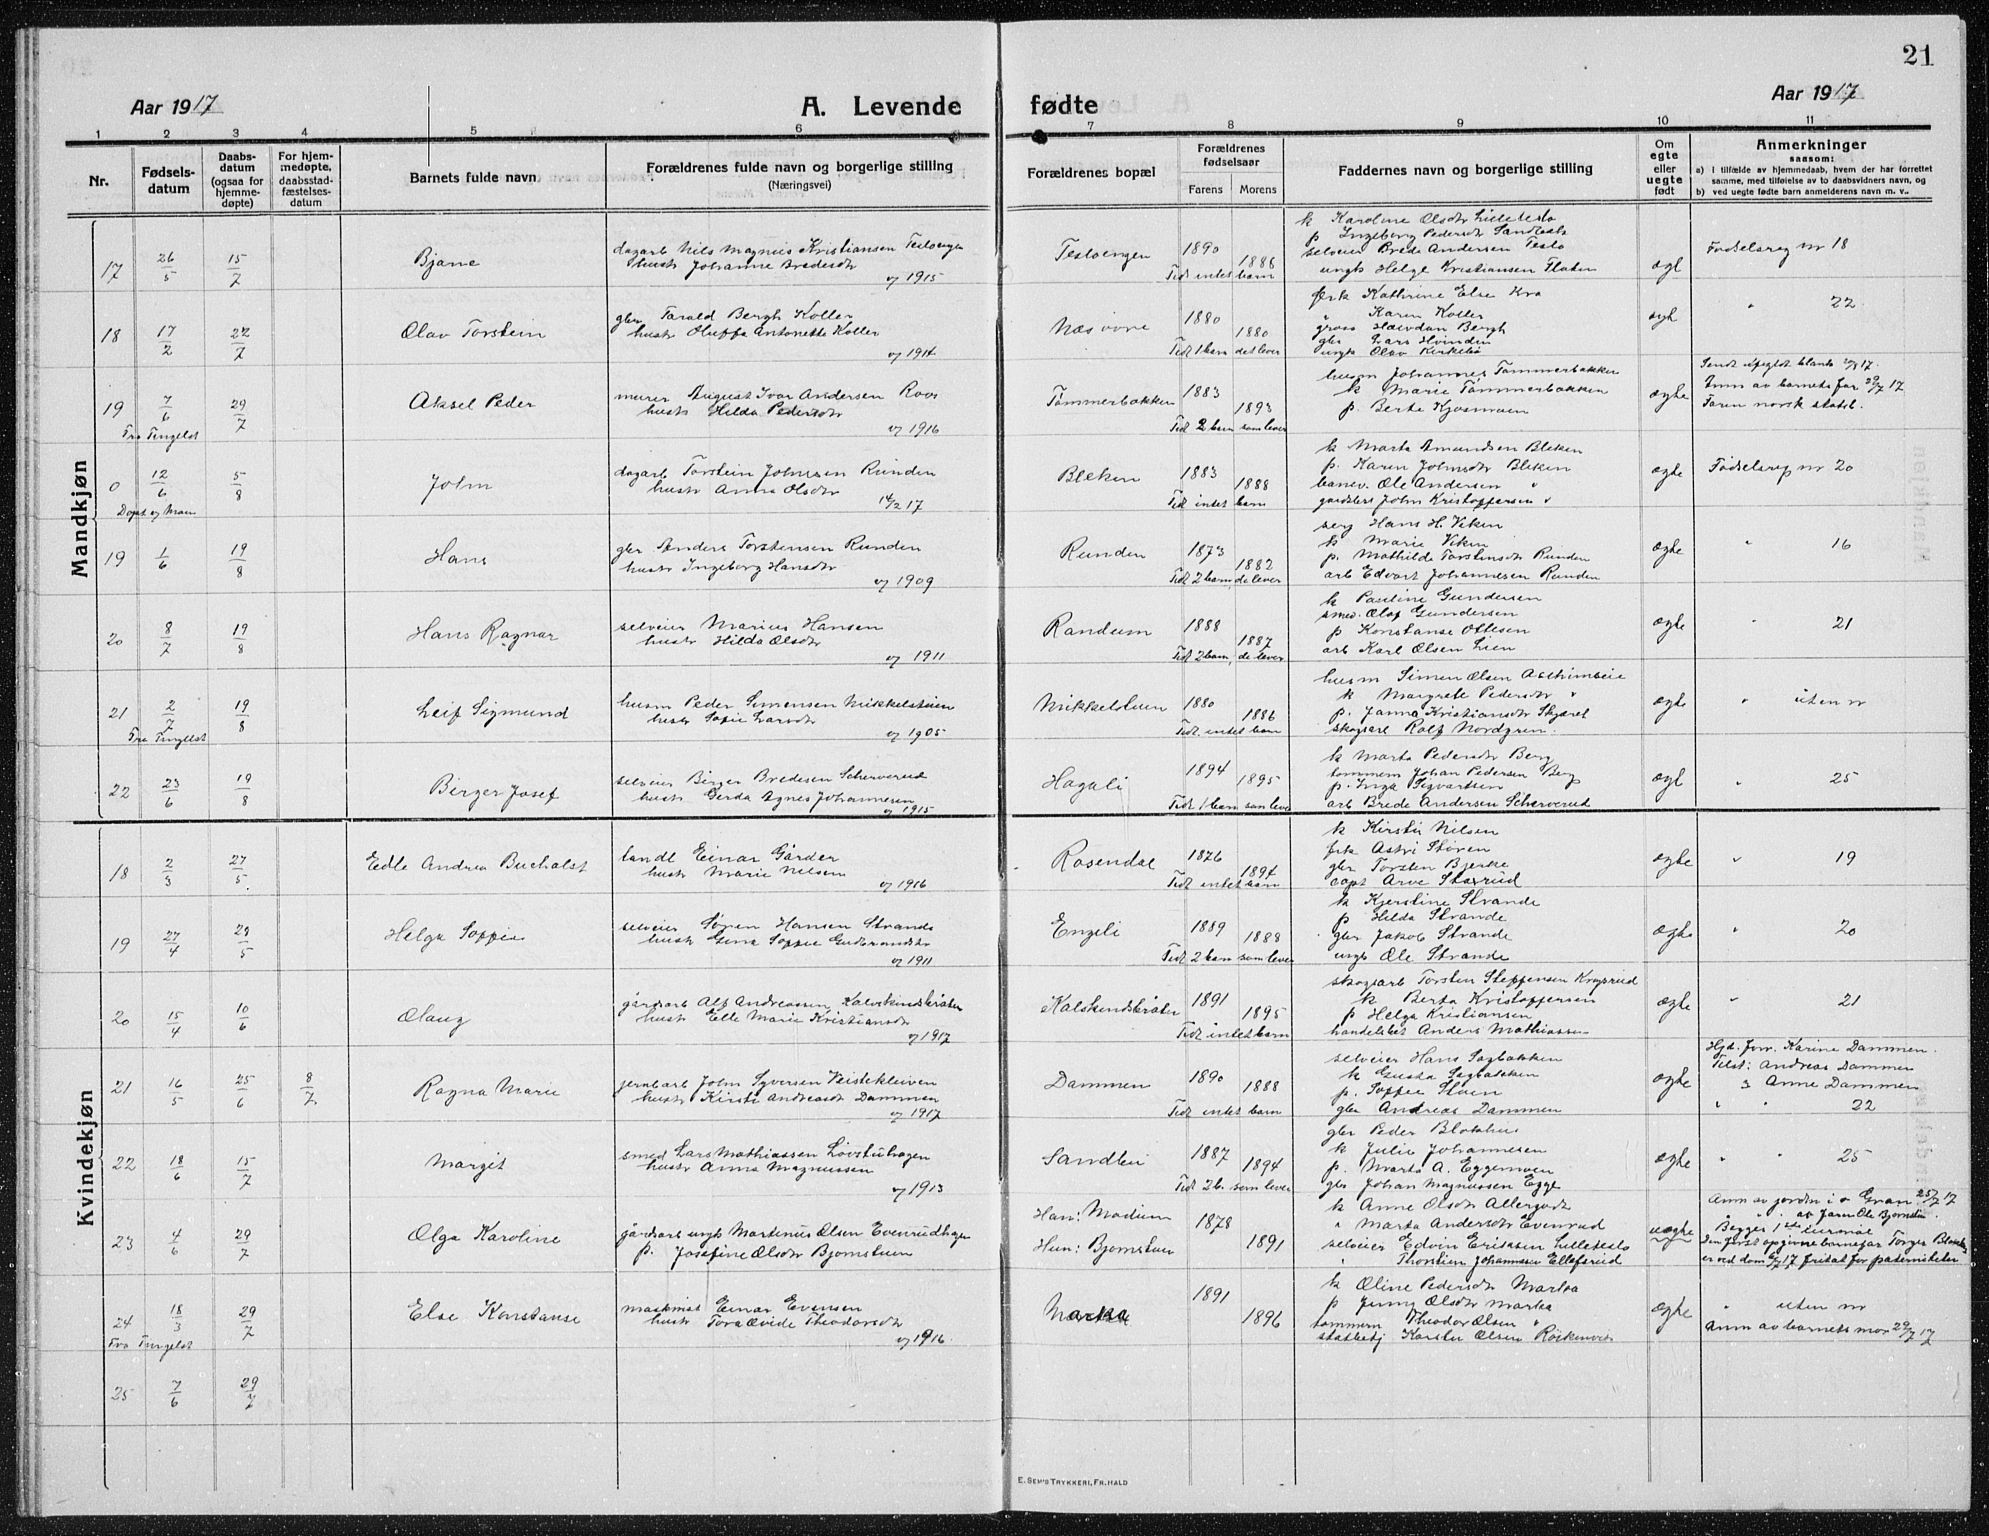 21
Aar 1917
A. Levende
fødte
Aar 1917
1 2 3 4 5 6 7 8 9 10 11
Nr.
Fødsels-
datum
Daabs-
datum
(ogsaa for
hjemme-
døpte)
For hjem-
medøpte,
daabsstad-
fæstelses-
datum
Barnets fulde navn
Forældrenes fulde navn og borgerlige stilling
(Næringsvei)
Forældrenes bopæl
Forældrenes
fødselsaar
Farens
Morens
Faddernes navn og borgerlige stilling
Om
egte
eller
uegte
født
Anmerkninger
saasom:
a) I tilfælde av hjemmedaab, hvem der har forrettet
samme, med tilføielse av to daabsvidners navn, og
b) ved uegte fødte barn anmelderens navn m. v..
Mandkjøn
17 26/5 15/7 Bjane
dagarb Nils Magnus Kristiansen Tesloengen
hustr Johanne Bredesdtr
og 1915
Tesloengen 1890 1886
Tidl intet barn
k Karoline Olsdtr Lilleteslo
p Ingeborg Pedersdtr
selveier Brede Andersen Teslo
ungk Helge Kristiansen Flaten
egt
Fødselsreg nr 18
18 17/2 22/7 Olav Torstein
gbr Tarald Bergh Koller
hustr Oluffa Antonette Koller
og 1914
Næs øvre 1880 1880
Tidl 1 barn det lever
frk Kathrine Else Kra
" Karen Koller
gross Halvdan Bergh
gbr Lars Hvinden
ungk Olav Kirkebø
egt
" 22
19 7/6 29/7 Aksel Peder
Fra Tingelst
murer August Ivar Andersen Roos
hustr Hilda Pedersdtr
og 1916
Tømmerbakken 1883 1893
Tidl 2 barn som lever
husm Johannes Tømmerbakken
k Marie Tømmerbakken
p. Berte Kjosmoen
egte
Sendt utfyldt blank 17.
Anm av barnets far 29/7 17
Faren norsk statsb.
0 12/6 5/8 John
Døpt og Moen
dagarb Torstein Johnsen Runden
hustr Anna Olsdtr
14/2 17
Bleken 1883 1888
Tidl intet barn
k Marta Amundsen Bleken
p. Karen Johnsdtr Bleken
banev. Ole Andersen "
gaardbr John Kristoffersen "
egte
Fødselsreg nr 20
19 1/6 19/8 Hans
gbr Anders Torstensen Runden
hustr Ingeborg Hansdtr
og 1909
Runden 1873 1882
Tidl 2 barn, de lever
serg Hans H. Viken
k Marie Viken
p. Mathilde Torstensdtr Runden
arb Edvart Johannesen Runden
egte
" 16
20 8/7 19/8 Hans Ragnar
selveier Marius Hansen
hustr Hilda Olsdtr
og 1911
Randum 1888 1887
Tidl 2 barn, de lever
k Pauline Gundersen
smed. Olaf Gundersen
p Konstanse Ottesen
arb Karl Olsen Lien
egte
" 21
21 2/7 19/8 Leif Sigmund
Fra Tingelst
husm Peder Simensen Mikkelstuen
hustr Sofie Larsdtr
og 1905
Mikkelstuen 1880 1886
Tidl. intet barn
husm Simen Olsen Aschimeie
k Margrete Pedersdtr "
p. Janna Kristiansdtr Skjæret
skogsarb Rolf Nordgren.
egte
" uten nr
22 23/6 19/8 Birger Josef
selveier Birger Bredesen Scherverud
hustr Gerda Agnes Johannesen
og 1915
Hagali 1894 1895
Tidl 1 barn som lever
k Marta Pedersdtr Berg
tømmerm Johan Pedersen Berg
p. Inga Sigvartsen
arb Brede Andersen Scherverud
egt
" 25
Kvindekjøn
18 2/3 27/5 Edle Andrea Bucholst
landl Einar Garder
hustr Marie Nilsen
og 1916
Rosendal 1876 1894
Tidl intet barn
k Kirsti Nilsen
frk Astri Støren
gbr Torsten Bjerke
capt Arve Staxrud
egte
" 19
19 27/4 29/5 Helga Soffie
selveier Søren Hansen Strande
hustr Gina Soffie Gudbrandsdtr
og 1911
Engeli 1889 1888
Tidl 2 barn som lever
k Kjerstine Strande
p Hilda Strande
gbr Jakob Strande
ungk Ole Strande
egte
" 20
20 15/4 10/6 Olaug
gårdsarb Alf Andreassen Kalvskindsbråten
hustr Elle Marie Kristiansdtr
og 1917
Kalskindsbråten 1891 1895
Tidl intet barn
skogsarb Torsten Steffensen Krogsrud
k Berta Kristoffersen
p Helga Kristiansen
handelsbet Anders Mathiassen
egte
" 21
21 16/5 25/6 8/7 Ragna Marie
jernbarb John Syversen Veistekleiven
hustr Kirsti Andreasdt Dammen
og 1917
Dammen 1890 1888
Tidl intet barn
selveier Hans Sagbakken
k Gusta Sagbakken
p. Soffie Stuen
gbr Andreas Dammen
egte
Hjd. forr. Karine Dammen.
Tilst: Andreas Dammen
og Anne Dammen
" " 22
22 18/6 15/7 Margit
smed Lars Mathiassen Løvstuhagen
hustr Anna Magnussen
og 1913
Sandbei 1887 1894
Tidl 2 b. som lever
gbr Peder Blokhus
k Julie Johannesen
p. Marta A. Eggemoen
gbr Johan Magnussen Egge
egte
" " 25
23 4/6 29/7 Olga Karoline
gårdsarb ungk Martinus Olsen Evenrudhagen
p. Josefine Olsdtr Bjørnstuen
Han: Modum
Hun: Bjørnstuen
1878 1891
k Anne Olsdtr Allergodt
" Marta Andersdtr Evenrud
selveier Edvin Eriksen Lilleteslo
" Thorstein Johannesen Ellefsrud
uegte
Anm av jordm i Gran 25/7 17
" av faren Ole Bjørnstu.
Begges 1ste leiermaal
Den først opgivne barnefar Torger
er ved dom 17 fritat for paterniteten
24 18/3 29/7 Else Konstanse
Fra Tingelst
maskinist Einar Evensen
hustr Tora Ovide Theodorsdtr
og 1916.
Marka 1891 1896
k Oline Pedersdtr Marka
p Jenny Olsdtr Marka
tømmerm Theodor Olsen "
statbetj Karsten Olsen Röikenvik
egte
" uten nr
Anm av barnets mor 29/7 17
25 7/6 29/7
E. SEM'S TRYKKERI, FR.HALD